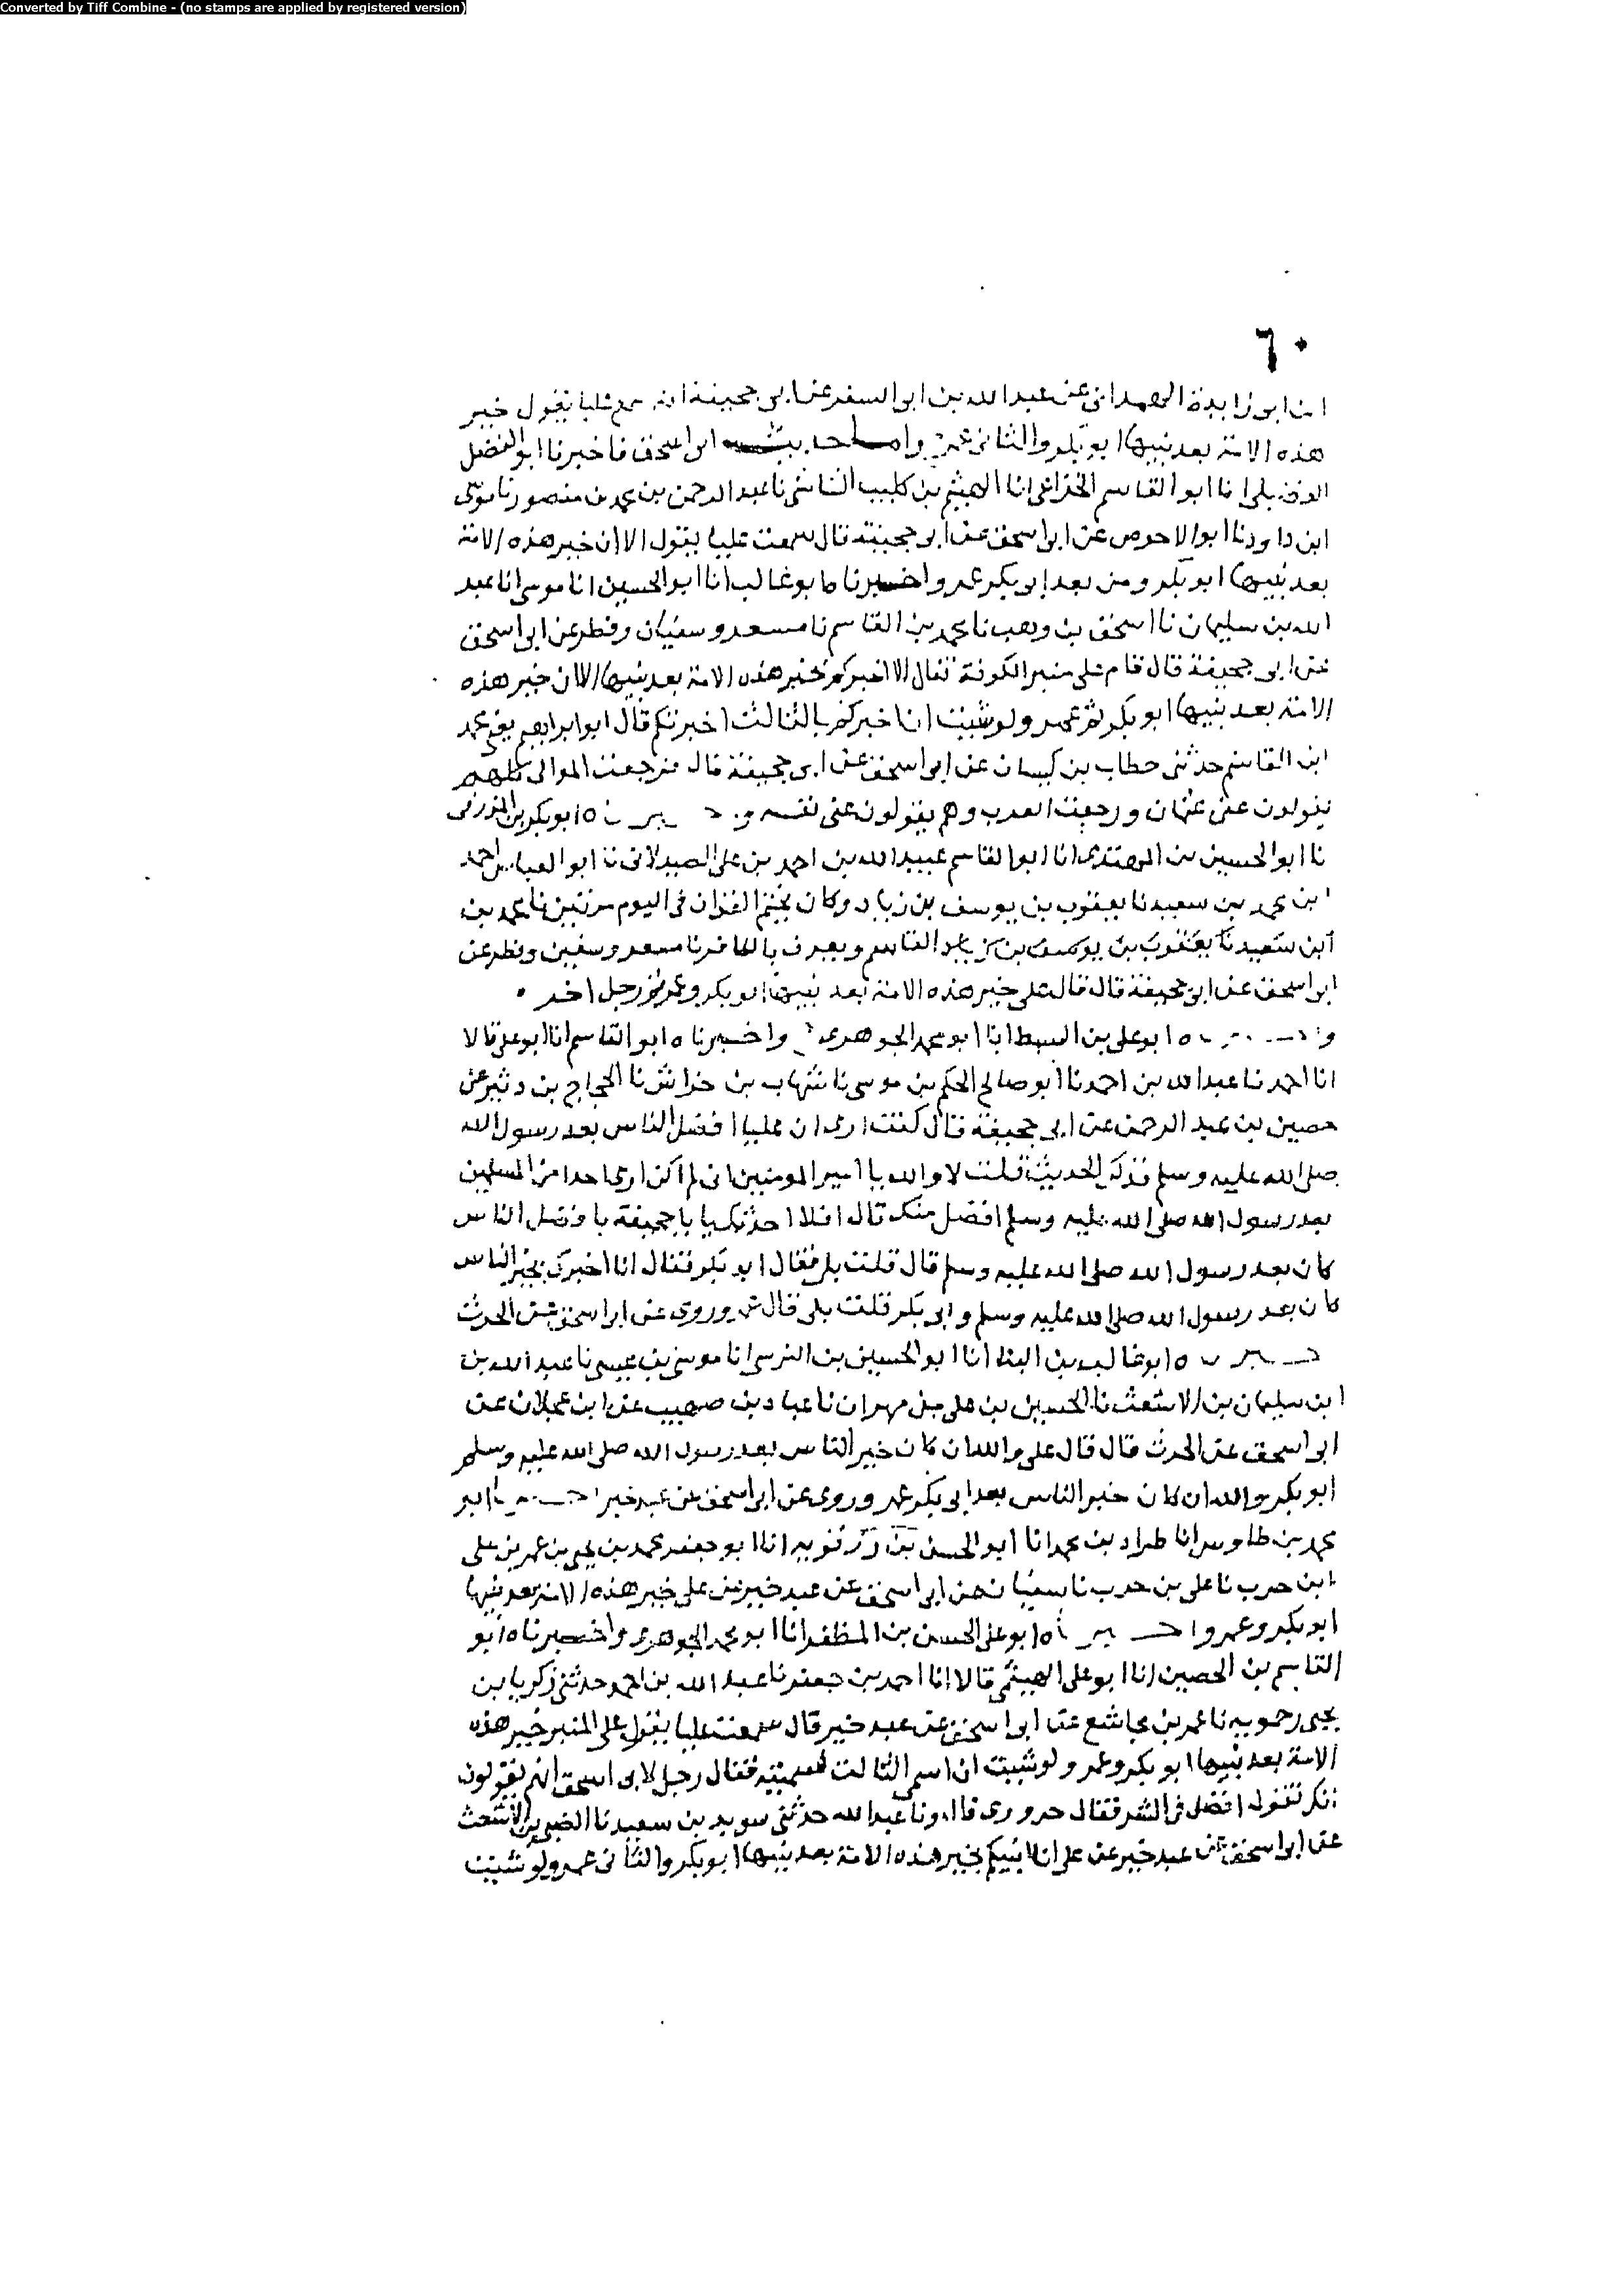 Converted by Tiff Combine - (no stamps are applied by registered version)
٦٠
ابن ابى زايدة الهمدانى عن عبد الله بن ابى السفر عن ابى جحيفة انه سمع عليا يقول خير
هذه الامة بعد نبيها ابو بكر والثانى عمر واما حديث ابى اسحق فاخبرنا ابو الفضل
الفضيلى انا ابو القاسم الخزاعى انا الهيثم بن كليب الشاشى نا عبد الرحمن بن محمد بن منصور نا موسى
ابن داود نا ابو الاحوص عن ابى اسحق عن ابى جحيفة قال سمعت عليا يقول الا ان خير هذه الامة
بعد نبيها ابو بكر ومن بعد ابى بكر عمر واخبرنا ابو غالب انا ابو الحسين انا موسى انا عبد
الله بن سليمان نا اسحق بن وهب نا محمد بن القاسم نا مسعر وسفيان وفطر عن ابى اسحق
عن ابى جحيفة قال قام على منبر الكوفة فقال الا اخبركم بخير هذه الامة بعد نبيها الا ان خير هذه
الامة بعد نبيها ابو بكر ثم عمر ولو شيت ان اخبركم بالثالث اخبرتكم قال ابو ابراهيم يعنى محمد
ابن القاسم حدثنى حطاب بن كيسان عن ابى اسحق عن ابى جحيفة قال فرجعت الموالى كلهم
يقولون عنى عثمان ورجعت العرب وهم يقولون عنى نفسه واخبرناه ابو بكر بن المزرفى
نا ابو الحسين بن المهتدى انا ابو القاسم عبيد الله بن احمد بن على الصيدلانى نا ابو العباس احمد
ابن محمد بن سعيد نا يعقوب بن يوسف بن زياد وكان يختم القران فى اليوم مرتين نا محمد بن
ابن سعيد نا يعقوب بن يوسف بن زياد القاسم ويعرف بالكافر نا مسعر وسفين وفطر عن
ابى اسحق عن ابى جحيفة قال قال على خير هذه الامة بعد نبيها ابو بكر وعمر ثم رجل اخر
واخبرناه ابو على بن السبط انا ابو محمد الجوهرى واخبرناه ابو القاسم انا ابو على قالا
انا احمد نا عبد الله بن احمد نا ابو صالح الحكم بن موسى نا شهاب بن خراش نا الحجاج بن دثير عن
حصين بن عبد الرحمن عن ابى جحيفة قال كنت ارى ان عليا افضل الناس بعد رسول الله
صلى الله عليه وسلم فذكر الحديث قلت لا والله يا امير المومنين انى لم اكن ارى احدا من المسلمين
بعد رسول الله صلى الله عليه وسلم افضل منك قال افلا احدثك يا با جحيفة با فضل الناس
كان بعد رسول الله صلى الله عليه وسلم قال قلت بلى فقال ابو بكر فقال انا اخبرك بخير الناس
كان بعد رسول الله صلى الله عليه وسلم وابى بكر قلت بلى قال عمر وروى عن ابى اسحق عن الحرث
اخبرناه ابو غالب بن البنا انا ابو الحسين بن النرسى انا موسى بن عيسى نا عبد الله بن
ابن سليمان بن الاشعث نا الحسين بن على بن مهران نا عباد بن صهيب عن ابن عجلان عن
ابى اسحق عن الحرث قال قال على والله ان كان خير الناس بعد رسول الله صلى الله عليه وسلم
ابو بكر والله ان كان خير الناس بعد ابى بكر عمر وروى عن ابى اسحق عن عبد خير اخبرنا ابو
محمد بن طاوس انا طراد بن محمد انا ابو الحسن بن رزقويه انا ابو جعفر محمد بن يحيى بن عمر بن على
ابن حرب نا على بن حرب نا سفيان عن ابى اسحق عن عبد خير عن على خير هذه الامة بعد نبيها
ابو بكر وعمر واخبرناه ابو على الحسن بن المظفر انا ابو محمد الجوهرى واخبرناه ابو
القاسم بن الحصين انا ابو على الهيثمى قالا انا احمد بن جعفر نا عبد الله بن احمد حدثنى زكريا بن
يحيى رحمويه نا عمر بن مجاشع عن ابى اسحق عن عبد خير قال سمعت عليا يقول على المنبر خير هذه
الامة بعد نبيها ابو بكر وعمر ولو شيت ان اسمى الثالث لسميته فقال رجل لابى اسحق انهم يقولون
انك تقول افضل فى الشر فقال حرورى قال ونا عبد الله حدثنى سويد بن سعيد نا الضبى بن الاشعث
عن ابى اسحق عن عبد خير عن على الا انبيكم بخير هذه الامة بعد نبيها ابو بكر والثانى عمر ولو شيت